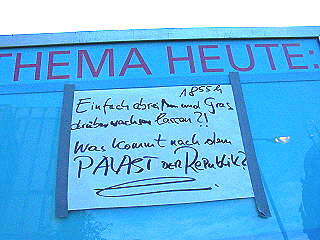 THEMA HEUTE:
1855h
Einfach abreißen und Gras
drüber wachsen lassen?!
Was kommt nach dem
PALAST DER Republik?